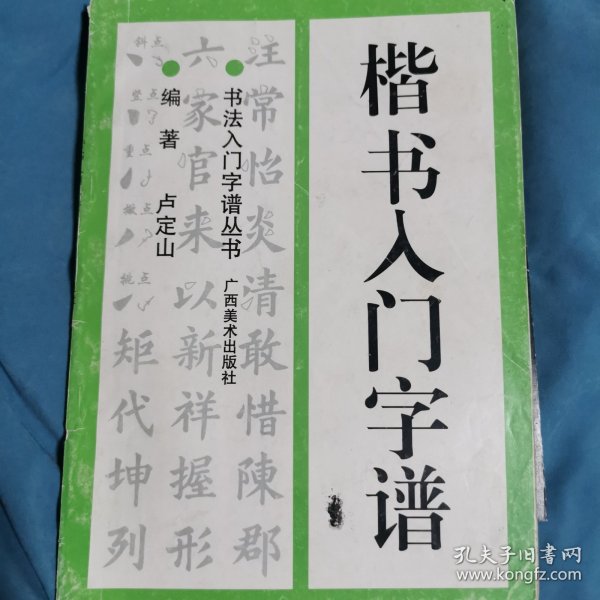 楷书入门字谱
书法入门字谱丛书
广西美术出版社
编著 卢定山
汪常怡炎清敢惜陳郡
六家官来以新祥握形
斜点
竖点
重点
撇点
挑点
矩代坤列
孔夫子旧书网
www.kongfz.com